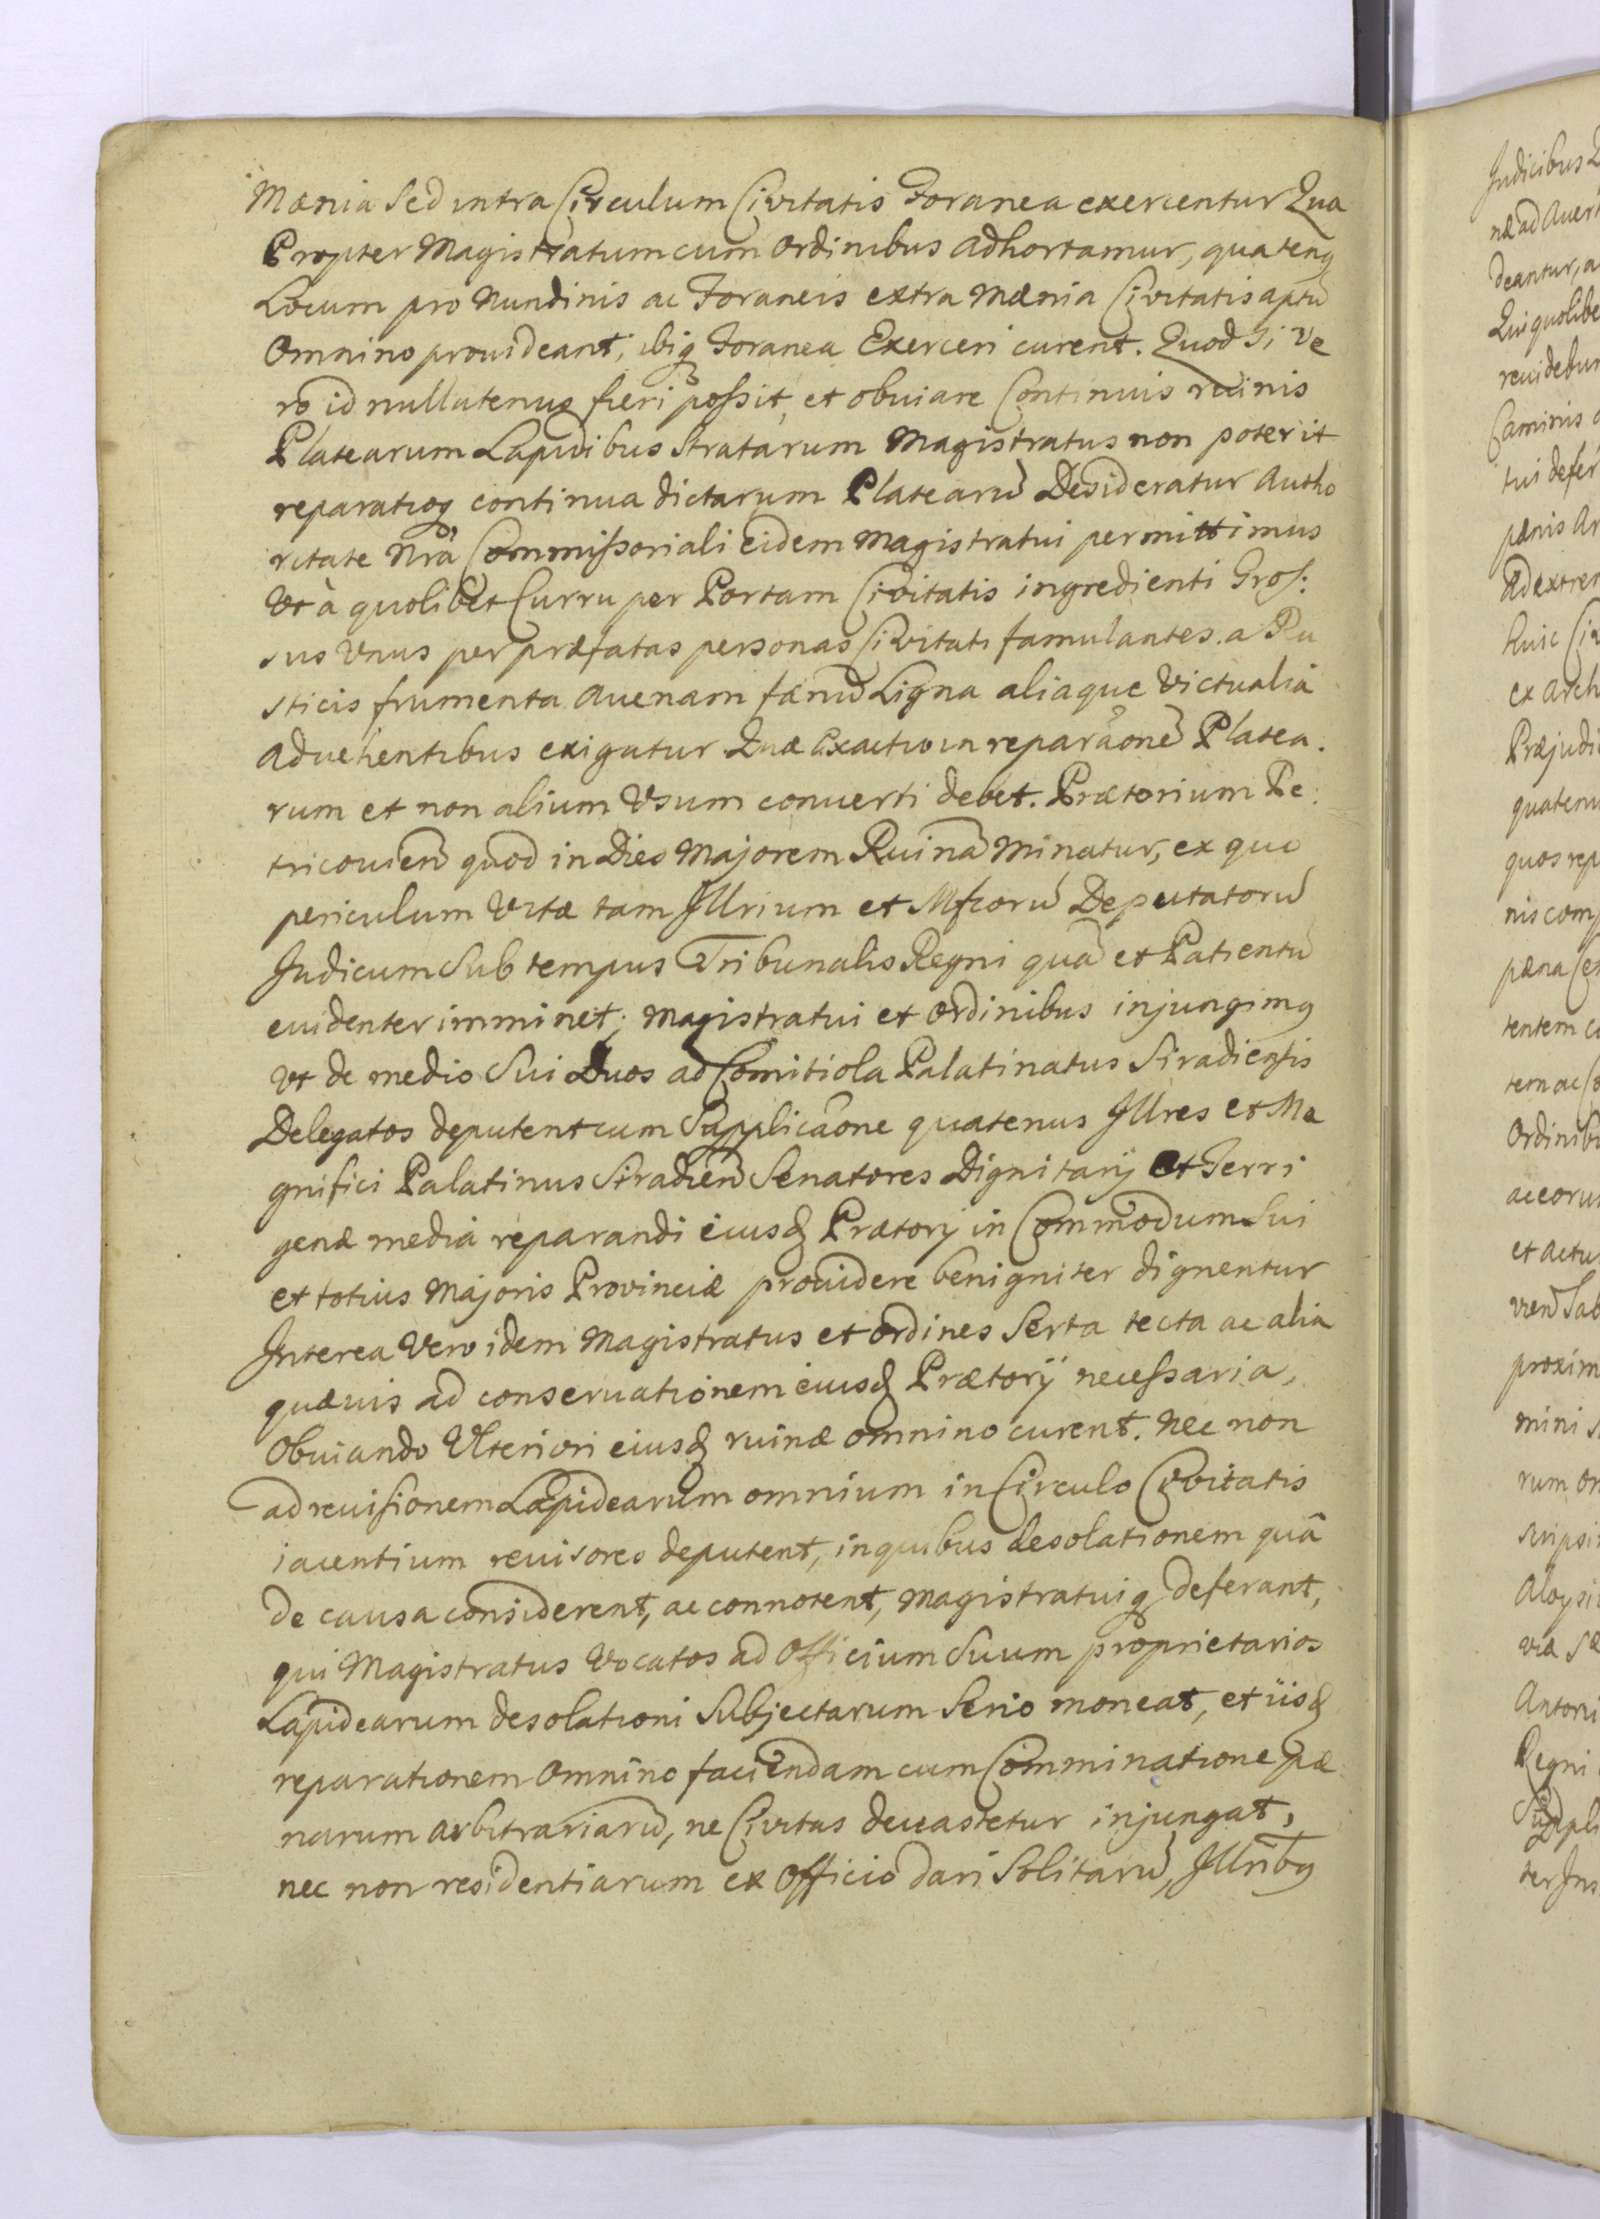 Mænia sed intra Circulum Civitatis Foranea exercentur Qua
Propter Magistratum cum Ordinibus adhortamur, quatenq
Locum pro Nundinis ac Foraneis extra Mænia Civitatis aptũ
Omnino prouideant, ibiq Foranea Exerceri curent. Quod si Ve
ro id nullatenus fieri possit, et obuiare Continuis ruinis
Platearum Lapidibus Stratarum Magistratus non poterit
reparatioq continua dictarum Platearũ Desideratur Autho
ritate Nrã Commissoriali eidem Magistratui permittimus
Vt à quolibet Curru per Portam Civitatis ingredienti Gros:
sus Vnus per præfatas personas Civitati famulantes. a Ru
sticis frumenta Auenam fænũ Ligna aliaque Victualia
aduehentibus exigatur Quæ Exactio in reparãone Platea.
rum et non alium Vsum conuerti debet. Prætorium Pe:
tricouien quod in Dies Majorem Ruinã Minatur, ex quo
periculum Vitæ tam Illrium et Mfcorũ Deputatorũ
Judicum Sub tempus Tribunalis Regni quã et Patientũ
euidenter imminet; Magistratui et Ordinibus injungimq
Vt de medio Sui Duos ad Comitiola Palatinatus Siradiensis
Delegatos deputent cum Supplicãone quatenus Illres et Ma
gnifici Palatinus Siradien Senatores Dignitarÿ Et Terri
genæ media reparandi eiusq Prætorÿ in Commodum Sui
et totius Majoris Provinciæ prouidere benigniter dignentur
Interea Vero idem Magistratus et ordines Serta tecta ac alia
quæuis ad conseruationem eiusq Prætorÿ necessaria,
Obuiando Vlteriori eiusq ruinæ omnino curent. Nec non
ad reuisionem Lapidearum omnium in Circulo Civitatis
iacentium reuisores deputent, in quibus desolationem quâ
de causa considerent, ac connotent, Magistratuiq deferant,
qui Magistratus Vocatos ad Officium Suum proprietarios
Lapidearum desolationi Subjectarum Serio moneat, et iisq
reparationem omnino faciendam cum Comminatione pæ
narum arbitrariarũ, ne Civitas deuastetur injungat,
nec non residentiarum ex Officio dari Solitarũ, Illribq
Judicibus
næ ad Auert
deantur, a
Qui quolibe
reuidebun
Caminis
tui defer
pænis Ar
ad extrem
huic Civ
ex Arch
Præjudi
quatenu
quos rep
nis comp
pæna Ce
tentem c
tem ac C
Ordinib
ac eorum
et actu
vien Sab
proxim
mini
rum or
scripsi
Aloysi
viæ Sæ
Antoni
Regni
ter Ins